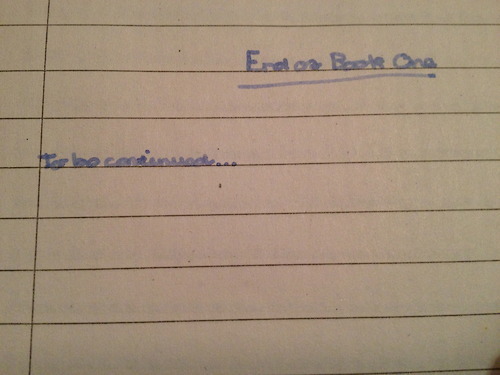 End of Book One
To be continued...